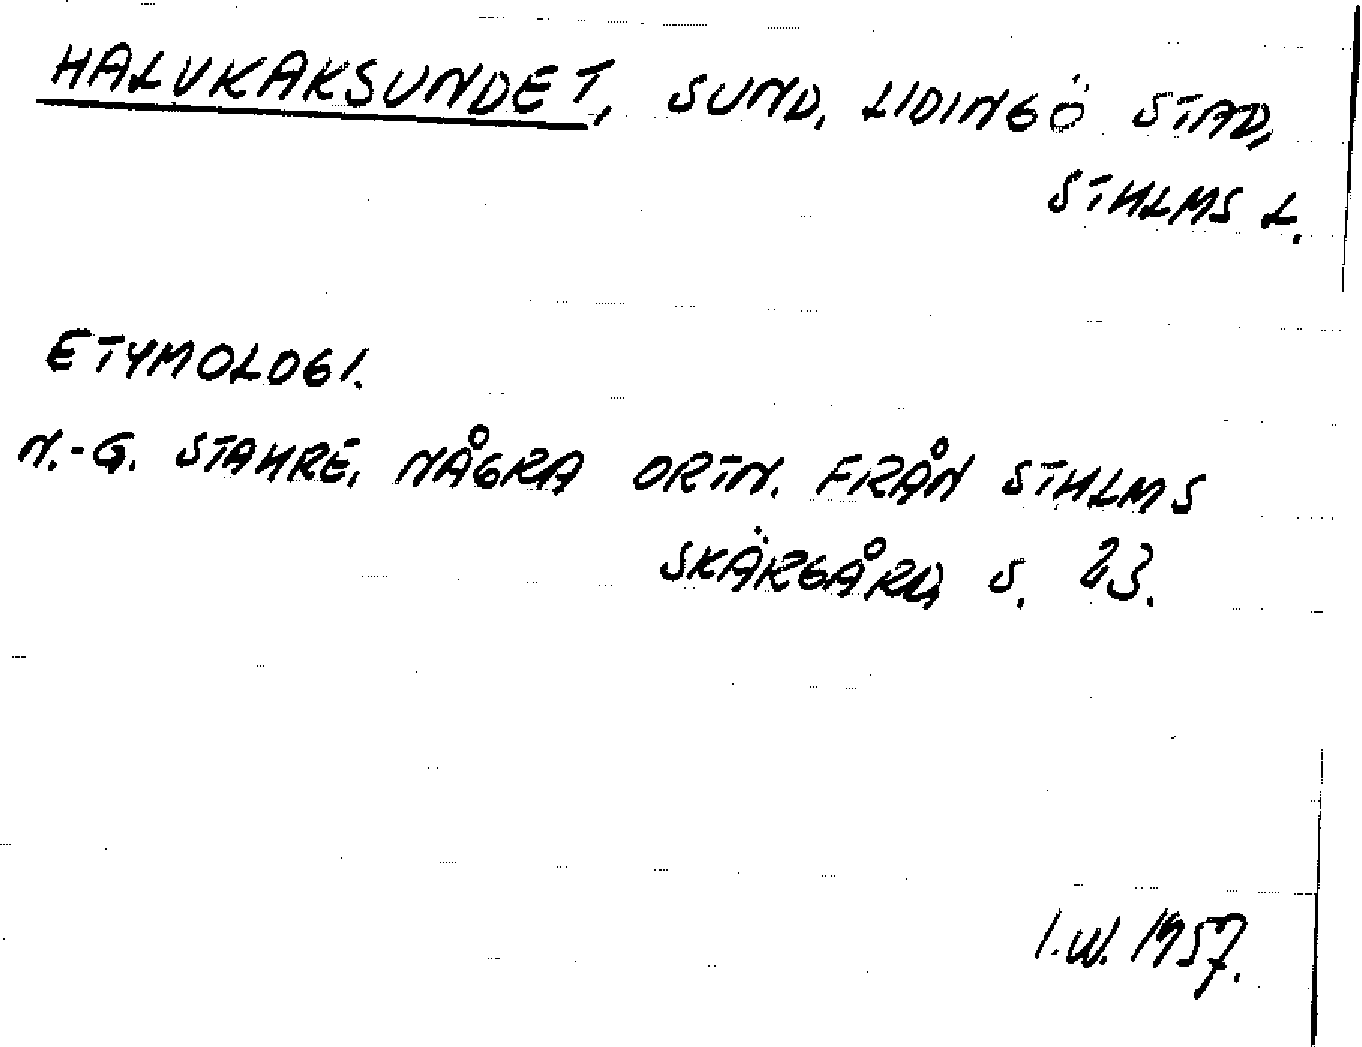 HALVKAKSUNDET, SUND, LIDINGÖ STAD,
STHLMS L.
ETYMOLOGI.
N.-G. STAHRE, NÅGRA ORTN. FRÅN STHLMS
SKÄRGÅRD, S. 23.
I.W. 1957.